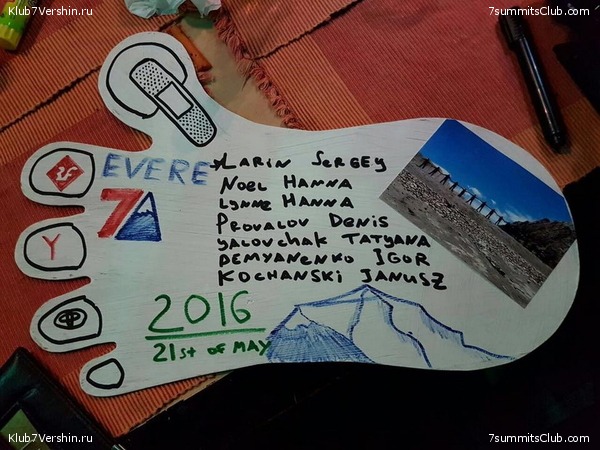 Klub7Vershin.ru
7summitsClub.com
EVERE
LARIN SERGEY
NOEL HANNA
LYNNE HANNA
PROVALOV DENIS
YALOVCHAK TATYANA
DEMYANENKO IGOR
KOCHANSKI JANUSZ
7
Y
2016
21ST OF MAY
Klub7Vershin.ru
7summitsClub.com